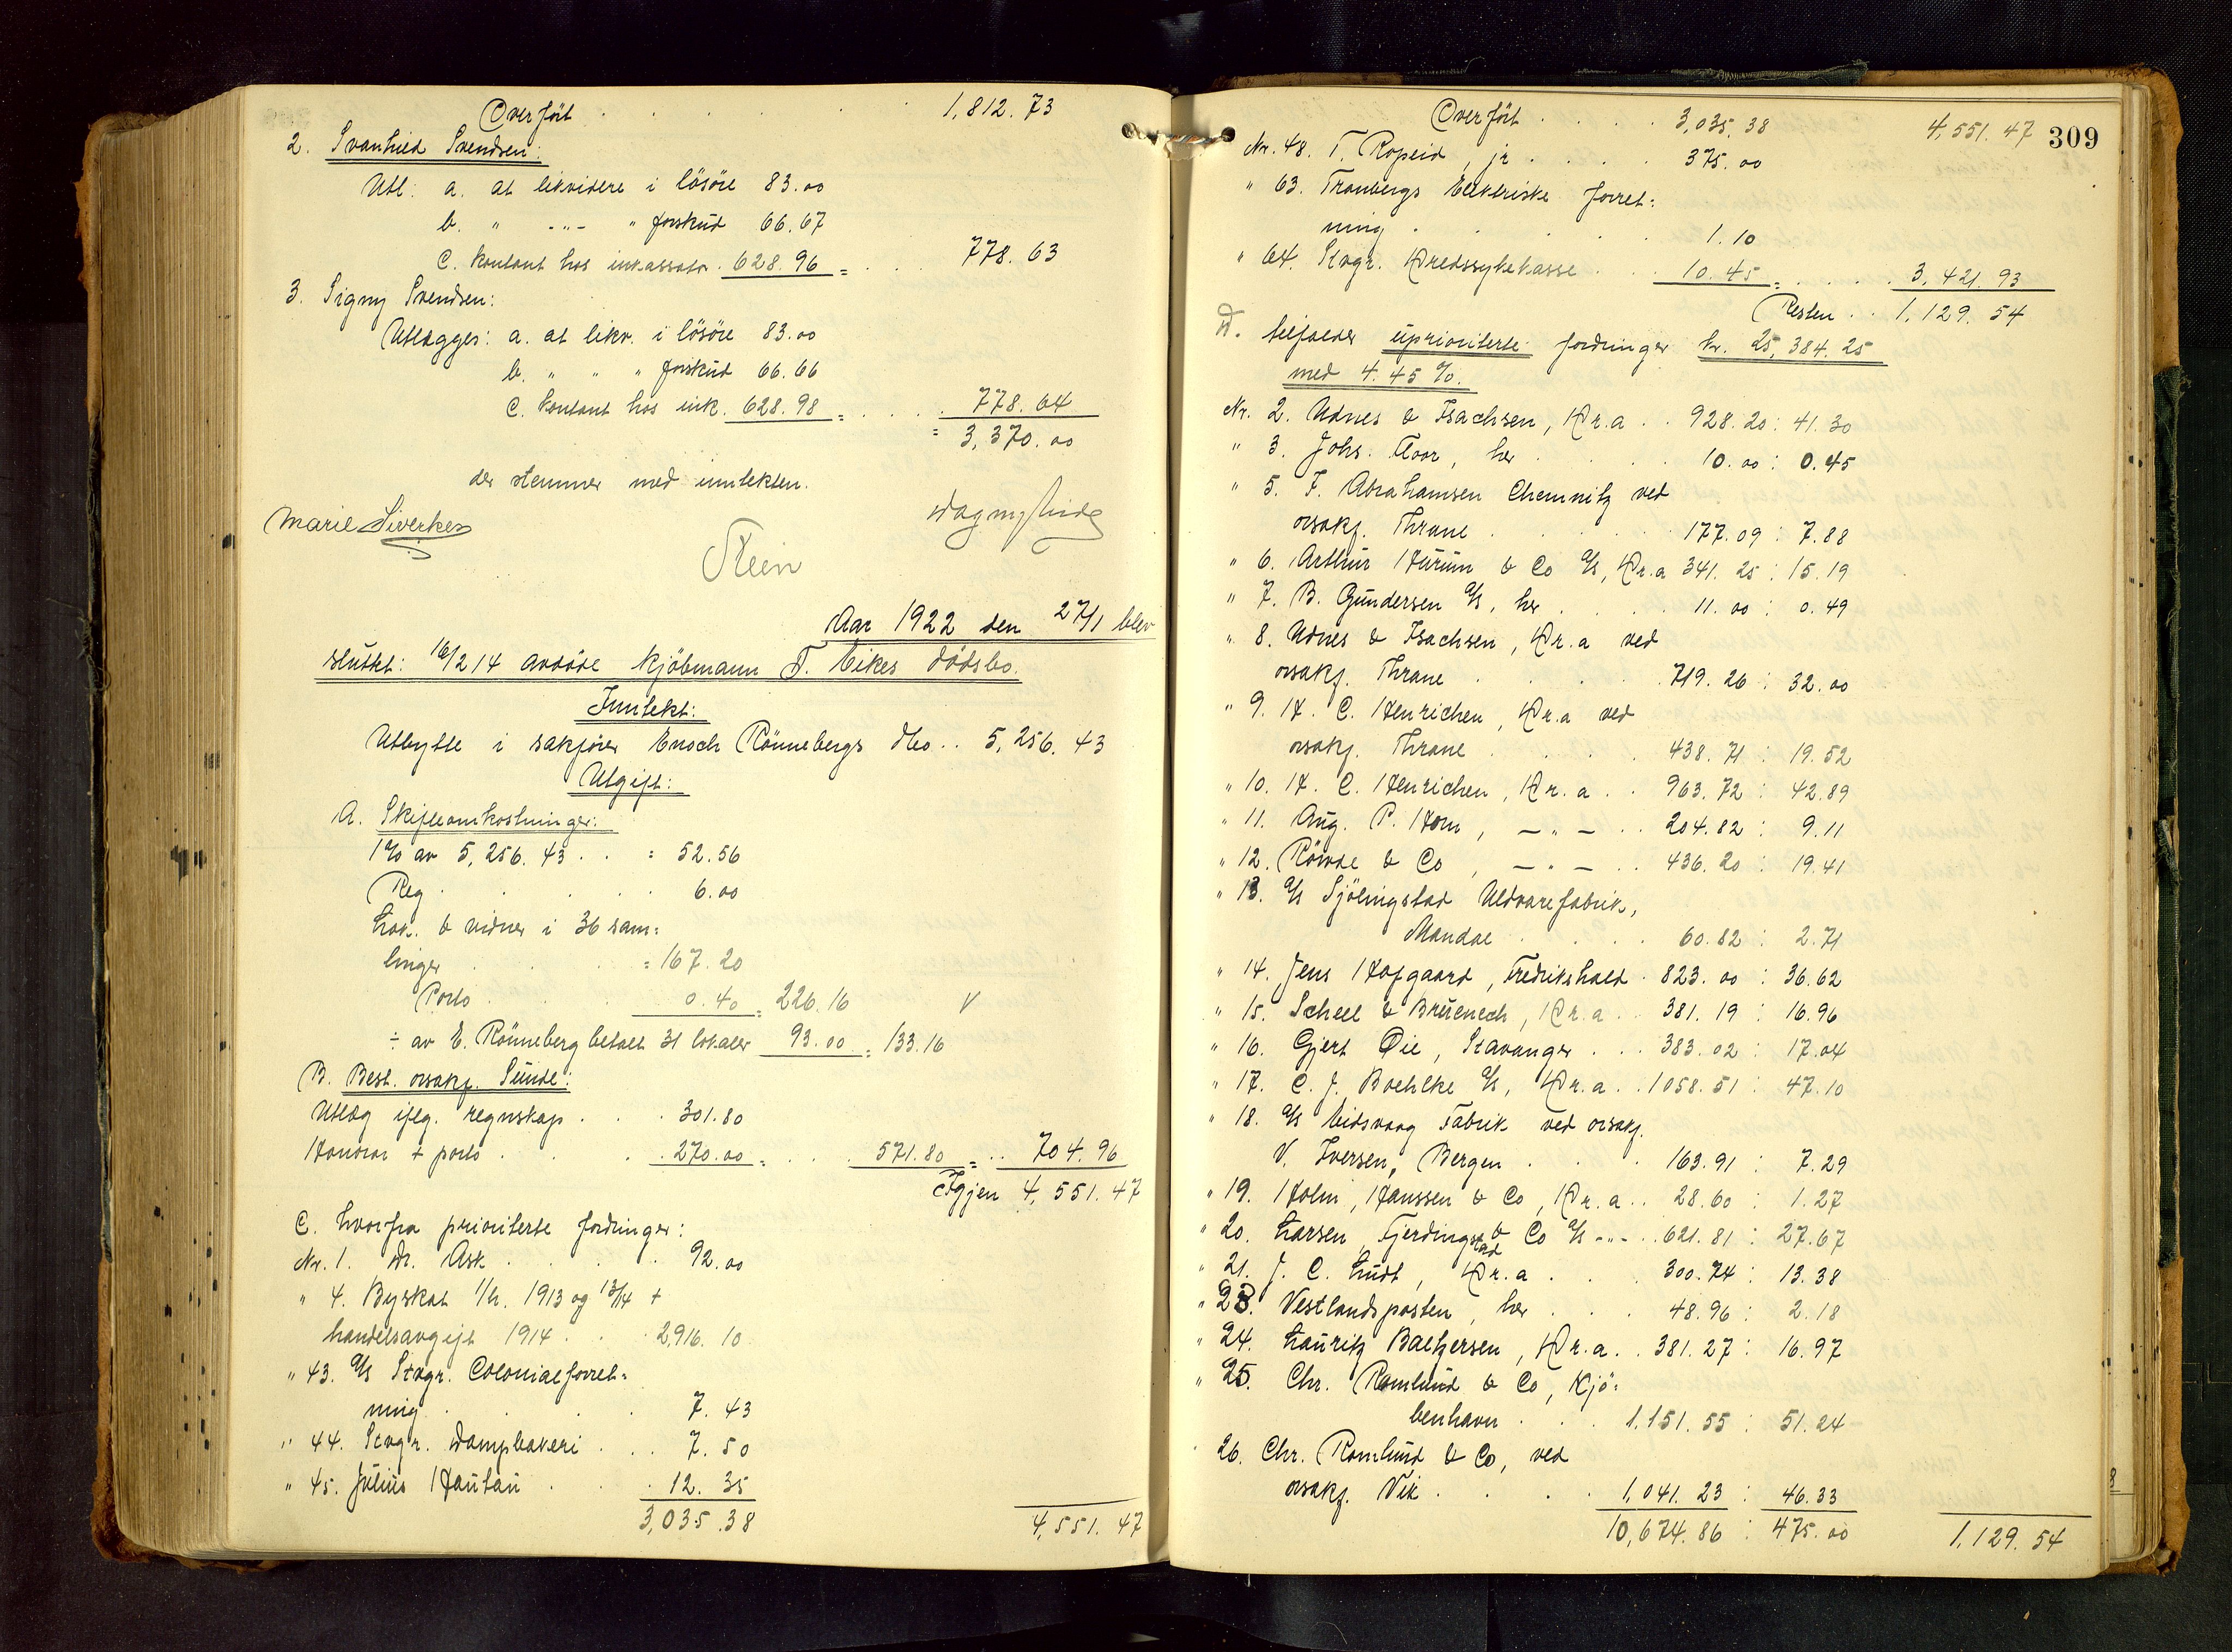 Overført . . . . 1,812.73
2. Svanhild Svendsen:
Utl: a. at likvidere i løsøre 83.00
b. " -"- " forskud 66.67
c. kontant hos inkassator. 628.96 = . . . 778.63
3. Signy Svendsen:
Utlægges: a. at likv. i løsøre 83.00
b. " " " forskud 66.66
c. kontant hos ink. 628.98 = . . . . 778.64
= 3,370.00
der stemmer med inntekten.
Marie Siverkes
Dagny
Stein
Aar 1922 den 27/1 blev
sluttet: 16/2 14 avdøde kjøbmann T. Eikes dødsbo.
Inntekt:
Utbytte i sakfører Enoch Rønnebergs dbo.. 5,256.43
Utgift:
A. Skifteomkostninger:
1% av 5,256.43 . . = 52.56
Reg . . . . 6.00
Lok. & vidner i 36 sam=
linger . . . = 167.20
Porto . . . 0.40 = 226.16 V
÷ av E. Rønneberg betalt 31 lokaler 93.00 = 133.16
B. Best. orsakf. Sunde:
Utlæg iflg. regnskap . . . 301.80
Honorar + porto . . . 270.00 = . . . 571.80 = .. 704.96
Igjen 4,551.47
C. hvorfra prioriterte fordringer:
Nr. 1. Dr. Ask . . . . 92.00
" 4. Byskat 1/h. 1913 og 13/14 +
handelsavgift 1914 . . . 2,916.10
" 43. A/S Stvgr. Colonialforret=
ning . . . . 7.43
" 44. Stvgr. Dampbakeri . . . 7.50
" 45. Julius Hautau . . . 12.35
3,035.38 4,551.47
309
Overført . . . . 3,035.38 4,551.47
Nr. 48. T. Ropeid, jr . . . . 375.00
" 63. Tranbergs Elektriske forret=
ning . . . . 1.10
" 64. Stvgr. Kredssykekasse . . . 10.45 = . . . . 3,421.93
Resten . . 1,129.54
D. tilfalder uprioriterte fordringer kr. 25,384.25
med 4.45 %.
Nr. 2. Udnes & Isachsen, Kr.a . . 928.20 : 41.30
" 3. Johs. Floor, her . . . 10.00 : 0.45
" 5. F. Abrahamsen Chemnitz ved
orsakf. Thrane . . . . 177.09 : 7.88
" 6. Arthur Hurum & Co A/S, Kr.a 341.25 : 15.19
" 7. B. Gundersen A/S, her . . . 11.00 : 0.49
" 8. Udnes & Isachsen, Kr.a ved
orsakf. Thrane . . . . 719.26 : 32.00
" 9. H. C. Henrichen, Kr.a ved
orsakf. Thrane . . . . 438.71 : 19.52
" 10. H. C. Henrichen, Kr.a . . 963.72 : 42.89
" 11. Aug. P. Horn, — " — . . 204.82 : 9.11
" 12. Röwde & Co, — " — . . 436.20 : 19.41
" 13. A/S Sjölingstad Uldvarefabrik,
Mandal . . . . 60.82 : 2.71
" 14. Jens Hofgaard, Fredrikshald . 823.00 : 36.62
" 15. Scheel & Bruenech, Kr.a . . 381.19 : 16.96
" 16. Gjert Øie, Stavanger . . . 383.02 : 17.04
" 17. C. J. Boehlke A/S, Kr.a . . 1058.51 : 47.10
" 18. A/S Eidsvaag Fabrik ved orsakf.
V. Iversen, Bergen . . . 163.91 : 7.29
" 19. Holm, Hanssen & Co, Kr.a . . 28.60 : 1.27
" 20. Larsen, Fjerdingstad & Co A/S -"- . . 621.81 : 27.67
" 21. J. C. Lindt, Kr.a . . . 300.74 : 13.38
" 23. Vestlandsposten, her . . . 48.96 : 2.18
" 24. Lauritz Baltzersen, Kr.a . . 381.27 : 16.97
" 25. Chr. Ramlund & Co, Kjø=
benhavn . . . 1,151.55 : 51.24
26. Chr. Ramlund & Co, ved
orsakf. Vik . . . . 1,041.23 : 46.33
10,674.86 : 475.00 1,129.54